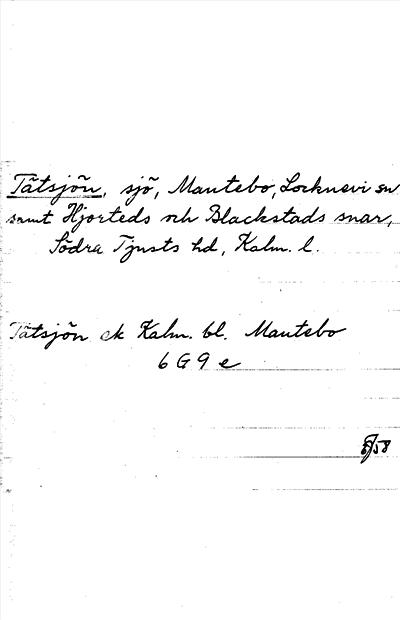 Tätsjön, sjö, Mantebo, Locknevi sn
samt Hjorteds och Blackstads snar,
Södra Tjusts hd, Kalm. l.
Tätsjön ek Kalm. bl. Mantebo
6 G 9 e